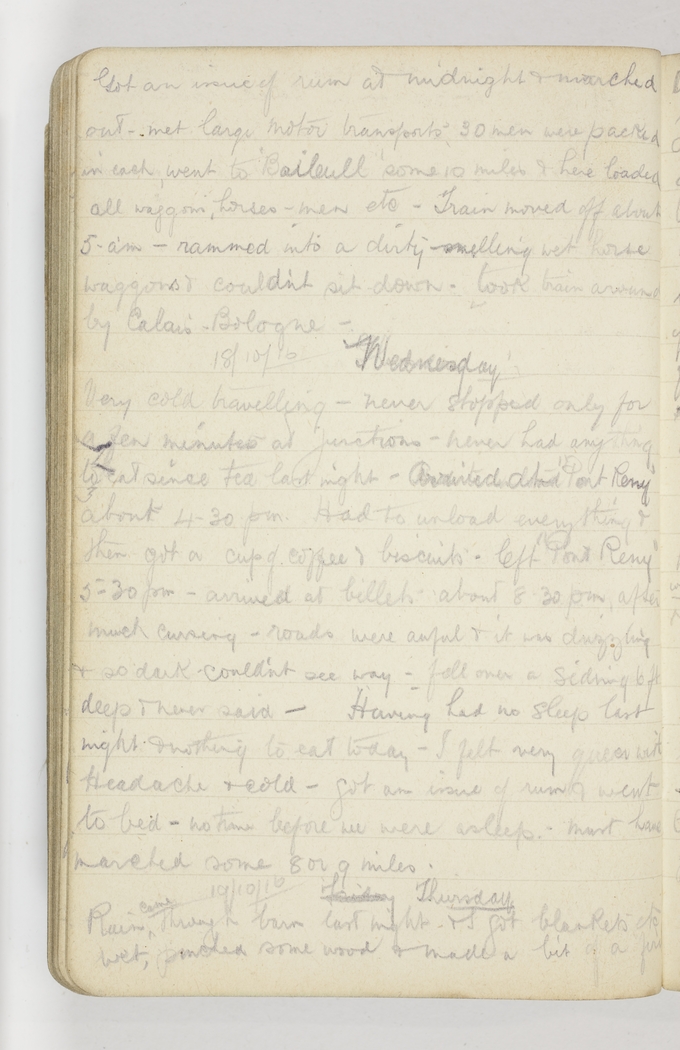 Got an issue of rum at midnight & marched
out - met large motor transports, 30 men were packed
in each, went to "Bailleull" some 10 miles & here loaded
all waggons, horses - men etc - Train moved off about
5-am - rammed into a dirty - smelling wet horse
waggons & couldn't sit down - took train around
by Calais - Bologne -
18/10/16 Wednesday
Very cold travelling - never stopped only for
a few minutes at junctions - never had anything
to eat since tea last night - at "Pont Remy"
about 4-30 pm. Had to unload everything &
then got a cup of coffee & biscuits - left "Pont Remy"
5-30 pm - arrived at billets about 8-30 pm, after
much cursing - roads were awful & it was drizzling
& so dark couldn't see way - fell over a siding 6 ft
deep & never said - Having had no sleep last
night & nothing to eat today - I felt very queer with
Headache & cold - got an issue of rum & went
to bed - no time before we were asleep. - must have
marched some 8 or 9 miles.
19/10/16 Friday Thursday
Rain, came through barn last night - & I got blankets etc
wet, pinched some wood & made a bit of a fire